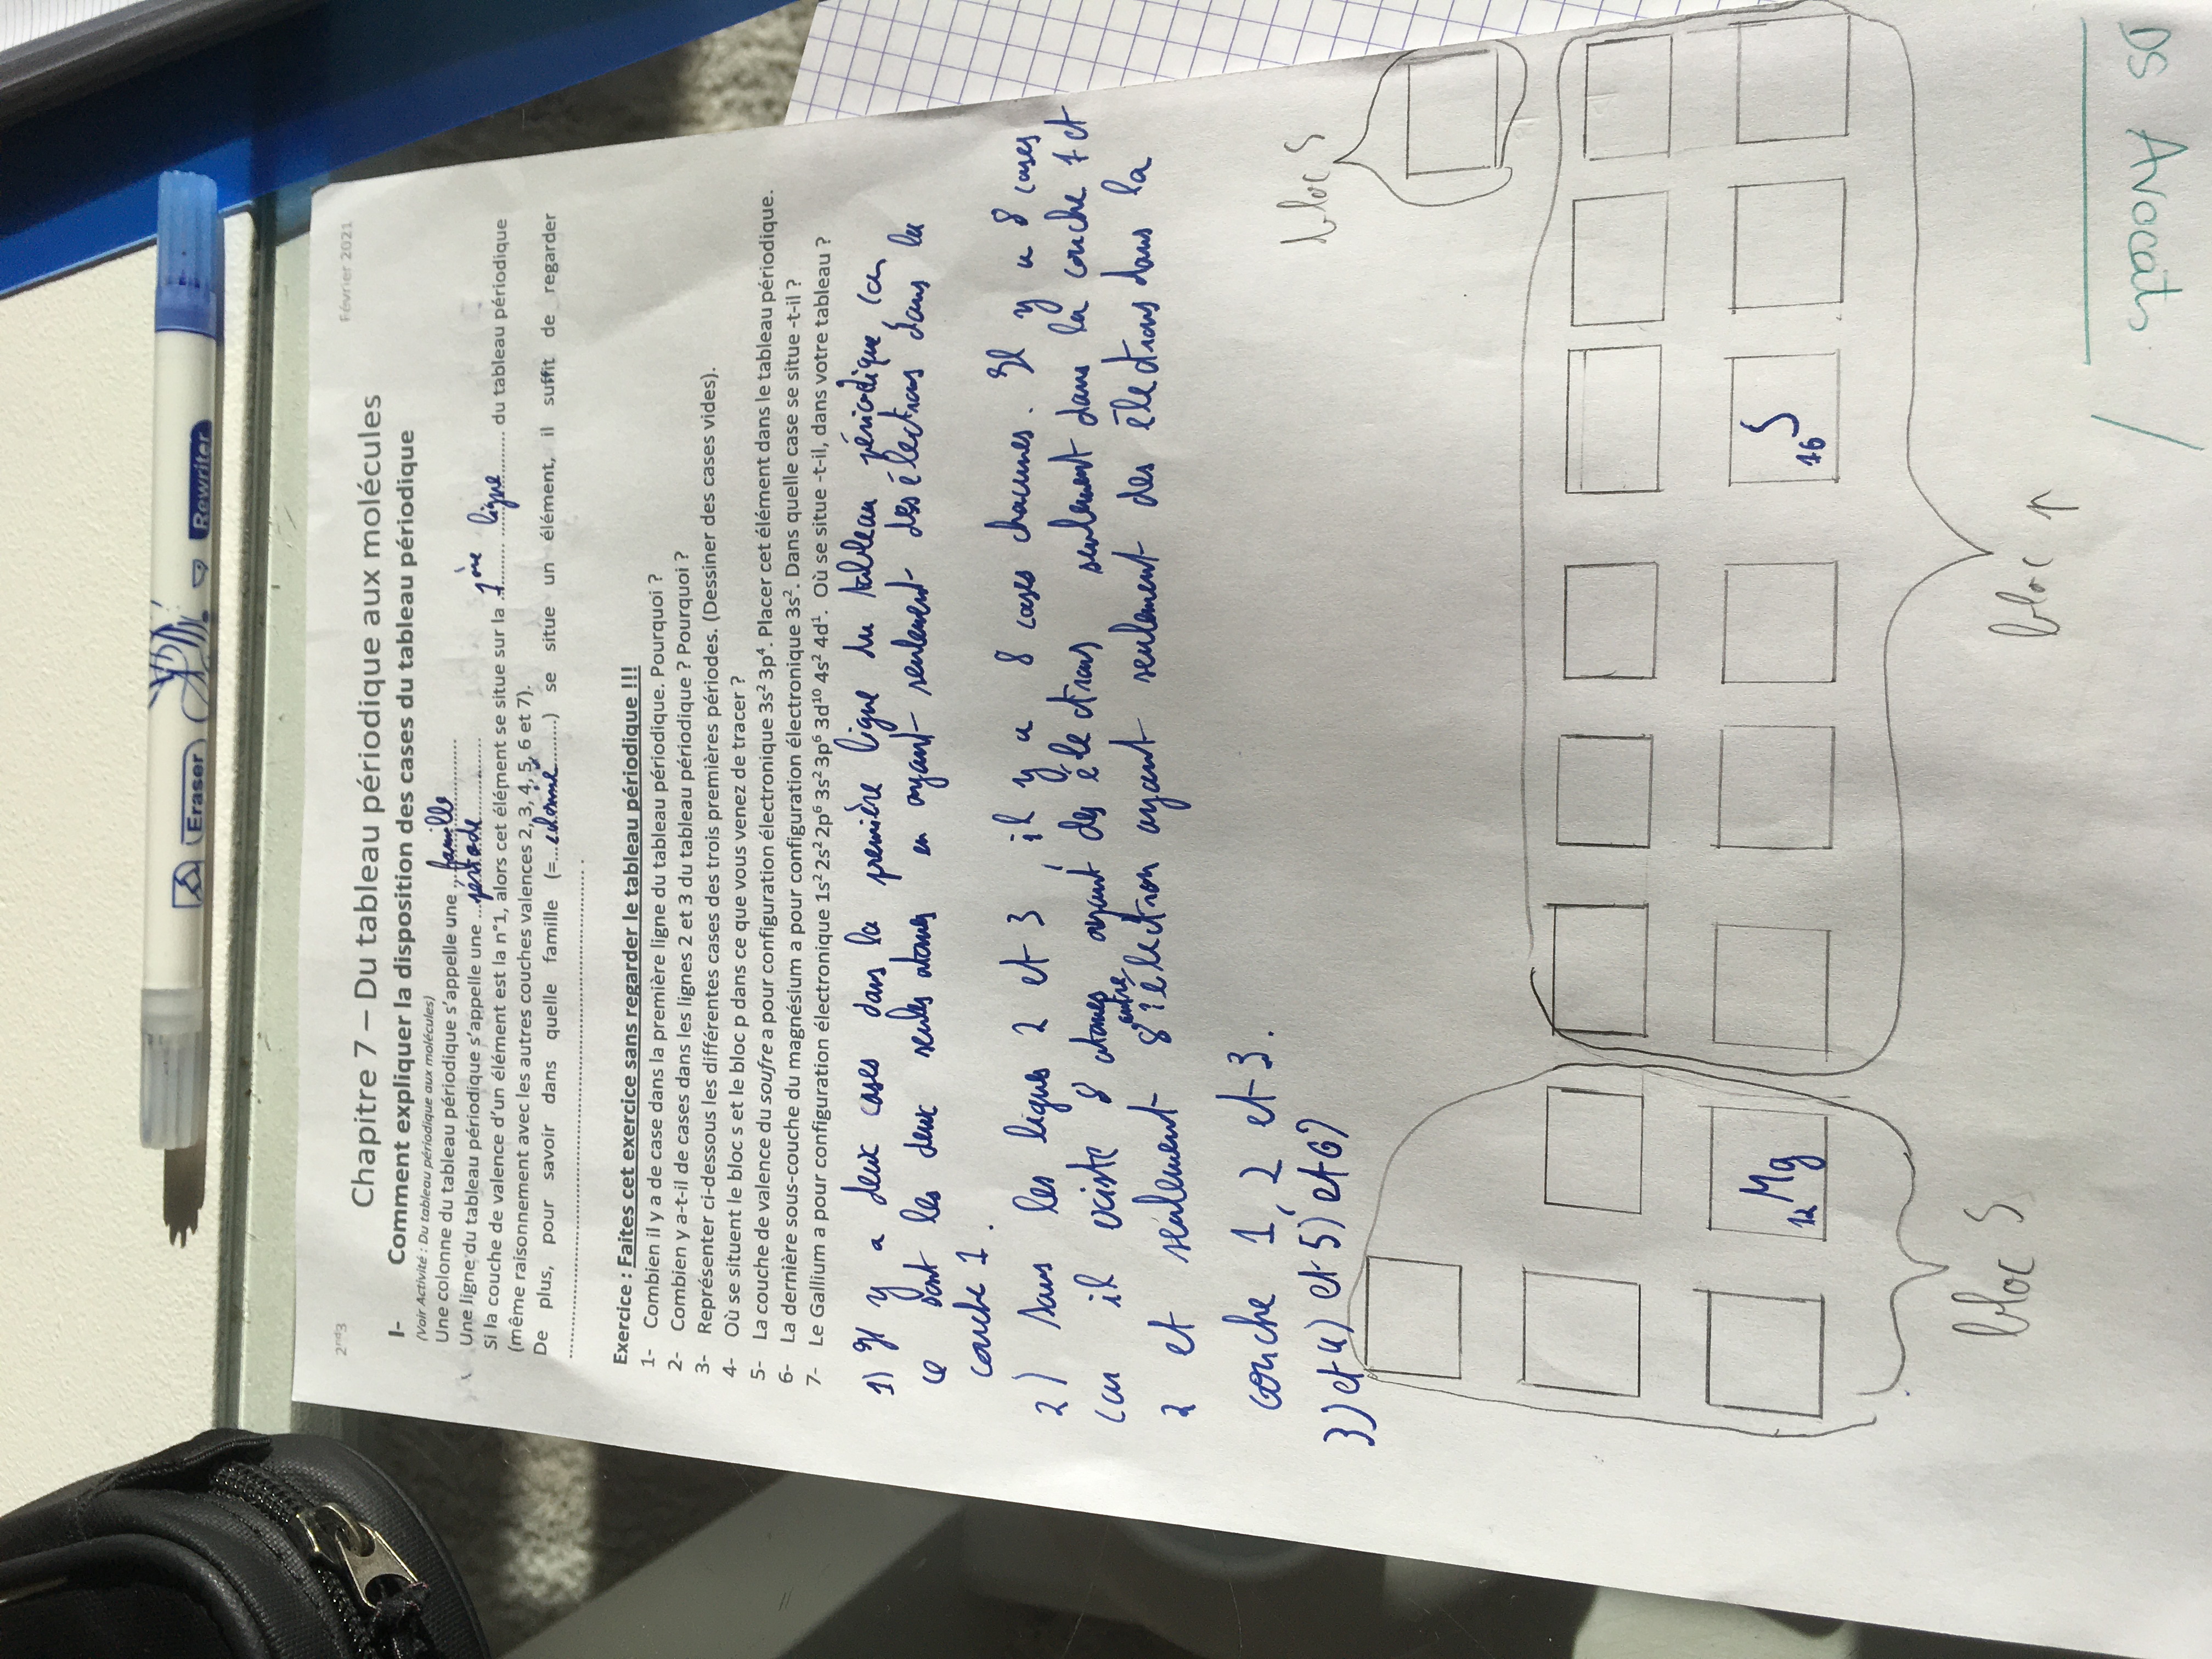 Eraser Rewriter
2nd3 Février 2021
Chapitre 7 – Du tableau périodique aux molécules
I- Comment expliquer la disposition des cases du tableau périodique
(Voir Activité : Du tableau périodique aux molécules)
Une colonne du tableau périodique s'appelle une ..famille..............
Une ligne du tableau périodique s'appelle une ...période..............
Si la couche de valence d'un élément est la n°1, alors cet élément se situe sur la .1ère....... ..ligne........... du tableau périodique
(même raisonnement avec les autres couches valences 2, 3, 4, 5, 6 et 7).
De plus, pour savoir dans quelle famille (=...colonne..........) se situe un élément, il suffit de regarder
.................................................................................... .
Exercice : Faites cet exercice sans regarder le tableau périodique !!!
1- Combien il y a de case dans la première ligne du tableau périodique. Pourquoi ?
2- Combien y a-t-il de cases dans les lignes 2 et 3 du tableau périodique ? Pourquoi ?
3- Représenter ci-dessous les différentes cases des trois premières périodes. (Dessiner des cases vides).
4- Où se situent le bloc s et le bloc p dans ce que vous venez de tracer ?
5- La couche de valence du soufre a pour configuration électronique 3s² 3p⁴. Placer cet élément dans le tableau périodique.
6- La dernière sous-couche du magnésium a pour configuration électronique 3s². Dans quelle case se situe -t-il ?
7- Le Gallium a pour configuration électronique 1s² 2s² 2p⁶ 3s² 3p⁶ 3d¹⁰ 4s² 4d¹. Où se situe -t-il, dans votre tableau ?
1) Il y a deux cases dans la première ligne du tableau périodique, car
ce sont les deux seules atomes en ayant seulement des électrons dans la
couche 1.
2) Dans les lignes 2 et 3, il y a 8 cases chacunes. Il y a 8 cases
car il existe 8 atomes ayant des électrons seulement dans la couche 1 et
2 et seulement 8 autre électron ayant seulement des électrons dans la
couche 1, 2 et 3.
3) et 4) et 5) et 6)
bloc S
12 Mg
16 S
bloc S
bloc p
DS Avocats